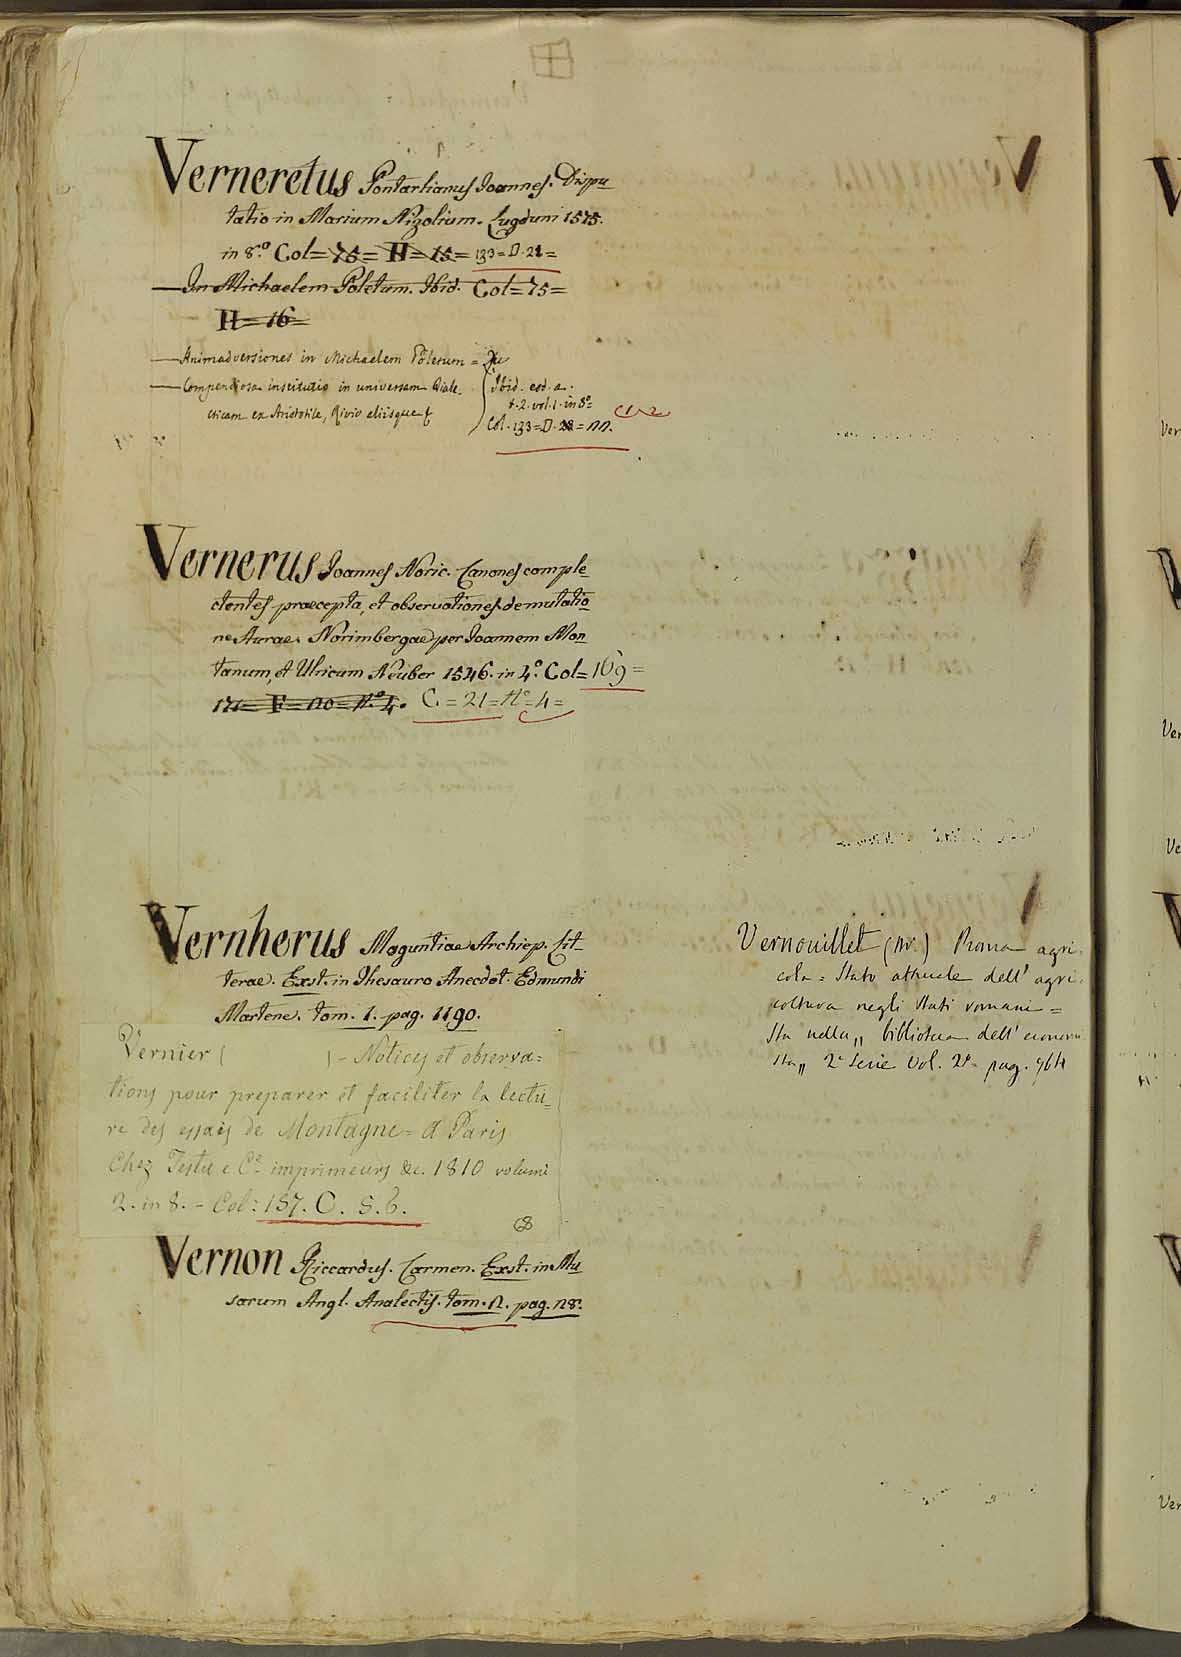 Verneretus Pontarlianus Joannes. Dispu
tatio in Marium Nizolium. Lugduni 1575.
in 8.º Col= 75= H= 15= 133= D. 21=
— In Michaelem Poletum. Ibid. Col= 75=
H= 16=
— Animadversiones in Michaelem Poletum =
— Compendiosa institutio in universam Diale-
cticam ex Aristotile, Rivio aliisque
Ibid. eod. a.
t. 2. vol. 1. in 8º
Col. 133= D. 21= nn.
Vernerus Joannes Noric. Canones comple-
ctentes praecepta, et observationes de mutatio
ne Aurae. Norimbergae per Joannem Mon
tanum, et Ulricum Neuber 1546. in 4.º Col= 169=
171= F= no= nº 4. C.= 21= Nº= 4=
Vernherus Moguntiae Archiep. Lit-
terae. Exst. in Thesauro Anecdot. Edmundi
Martene. tom. 1. pag. 1190.
Vernier ( ) - Notices et observa=
tions pour preparer et faciliter la lectu=
re des essais de Montagne= a Paris
Chez Testu e Cº imprimeurs &c. 1810 volumi
2. in 8. - Col: 157. C. 5. 6.
Vernon Riccardus. Carmen. Exst. in Mu
sarum Angl. Analectis. tom. 2. pag. 28.
Vernouillet (m.) Roma agri-
cola = Stato attuale dell' agri-
coltura negli Stati romani =
Sta nella „ biblioteca dell' economi
sta „ 2ª Serie Vol. 2º pag. 764
Ver
Ver
Ve
Ver